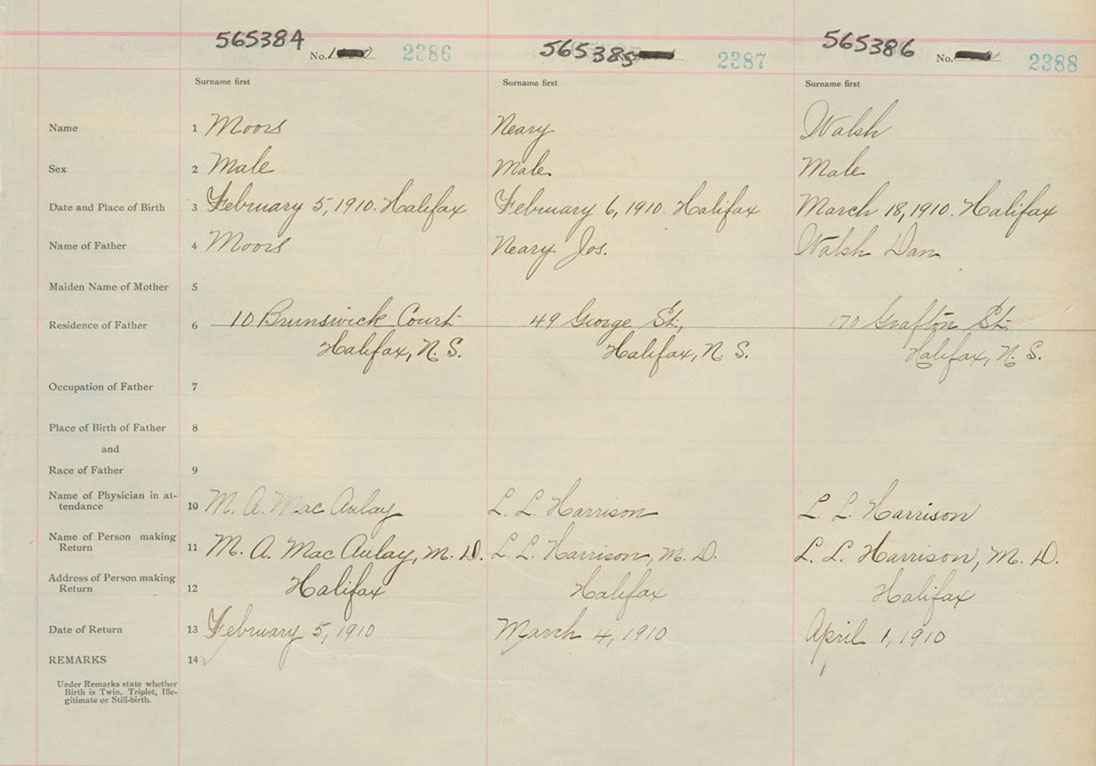 565384 No. 2386 565385 2387 565386 No. 2388
Surname first Surname first Surname first
Name 1 Moors Neary Walsh
Sex 2 Male Male Male
Date and Place of Birth 3 February 5, 1910. Halifax February 6, 1910. Halifax March 18, 1910. Halifax
Name of Father 4 Moors Neary Jos. Walsh Dan
Maiden Name of Mother 5
Residence of Father 6 10 Brunswick Court 49 George St., 170 Grafton St.
Halifax, N. S. Halifax, N. S. Halifax, N. S.
Occupation of Father 7
Place of Birth of Father 8
and
Race of Father 9
Name of Physician in at-
tendance 10 M. A. Mac Aulay L. L. Harrison L. L. Harrison
Name of Person making
Return 11 M. A. Mac Aulay, M. D. L. L. Harrison, M. D. L. L. Harrison, M. D.
Address of Person making
Return 12 Halifax Halifax Halifax
Date of Return 13 February 5, 1910 March 4, 1910 April 1, 1910
REMARKS 14
Under Remarks state whether
Birth is Twin, Triplet, Ille-
gitimate or Still-birth.